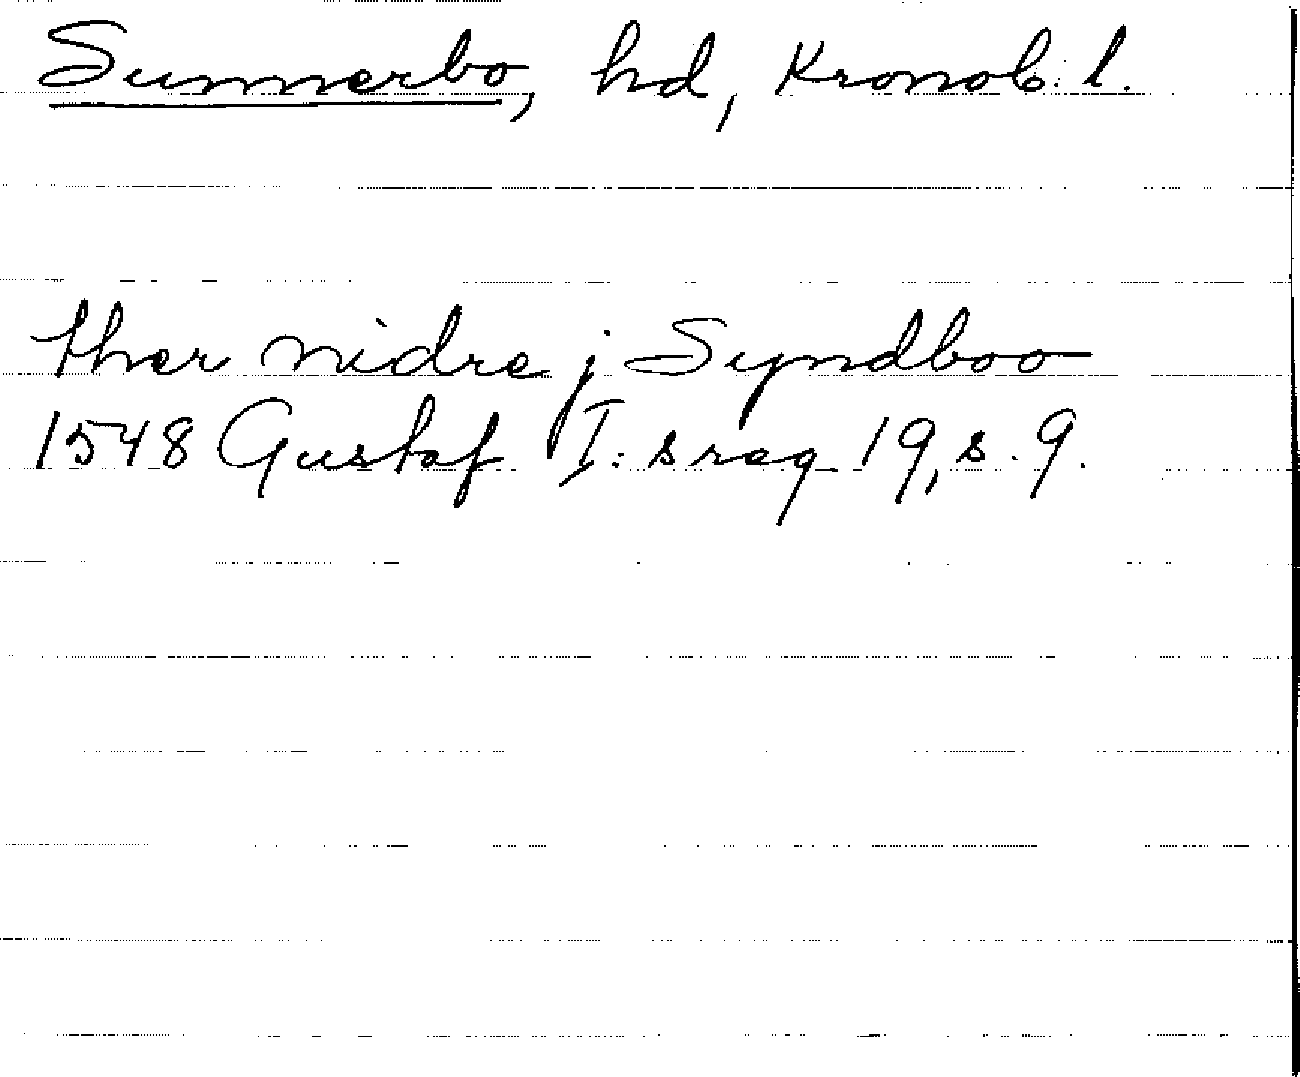 Sunnerbo, hd, Kronob. l.
ther nidre j Syndboo
1548 Gustaf I:s reg 19, s. 9.